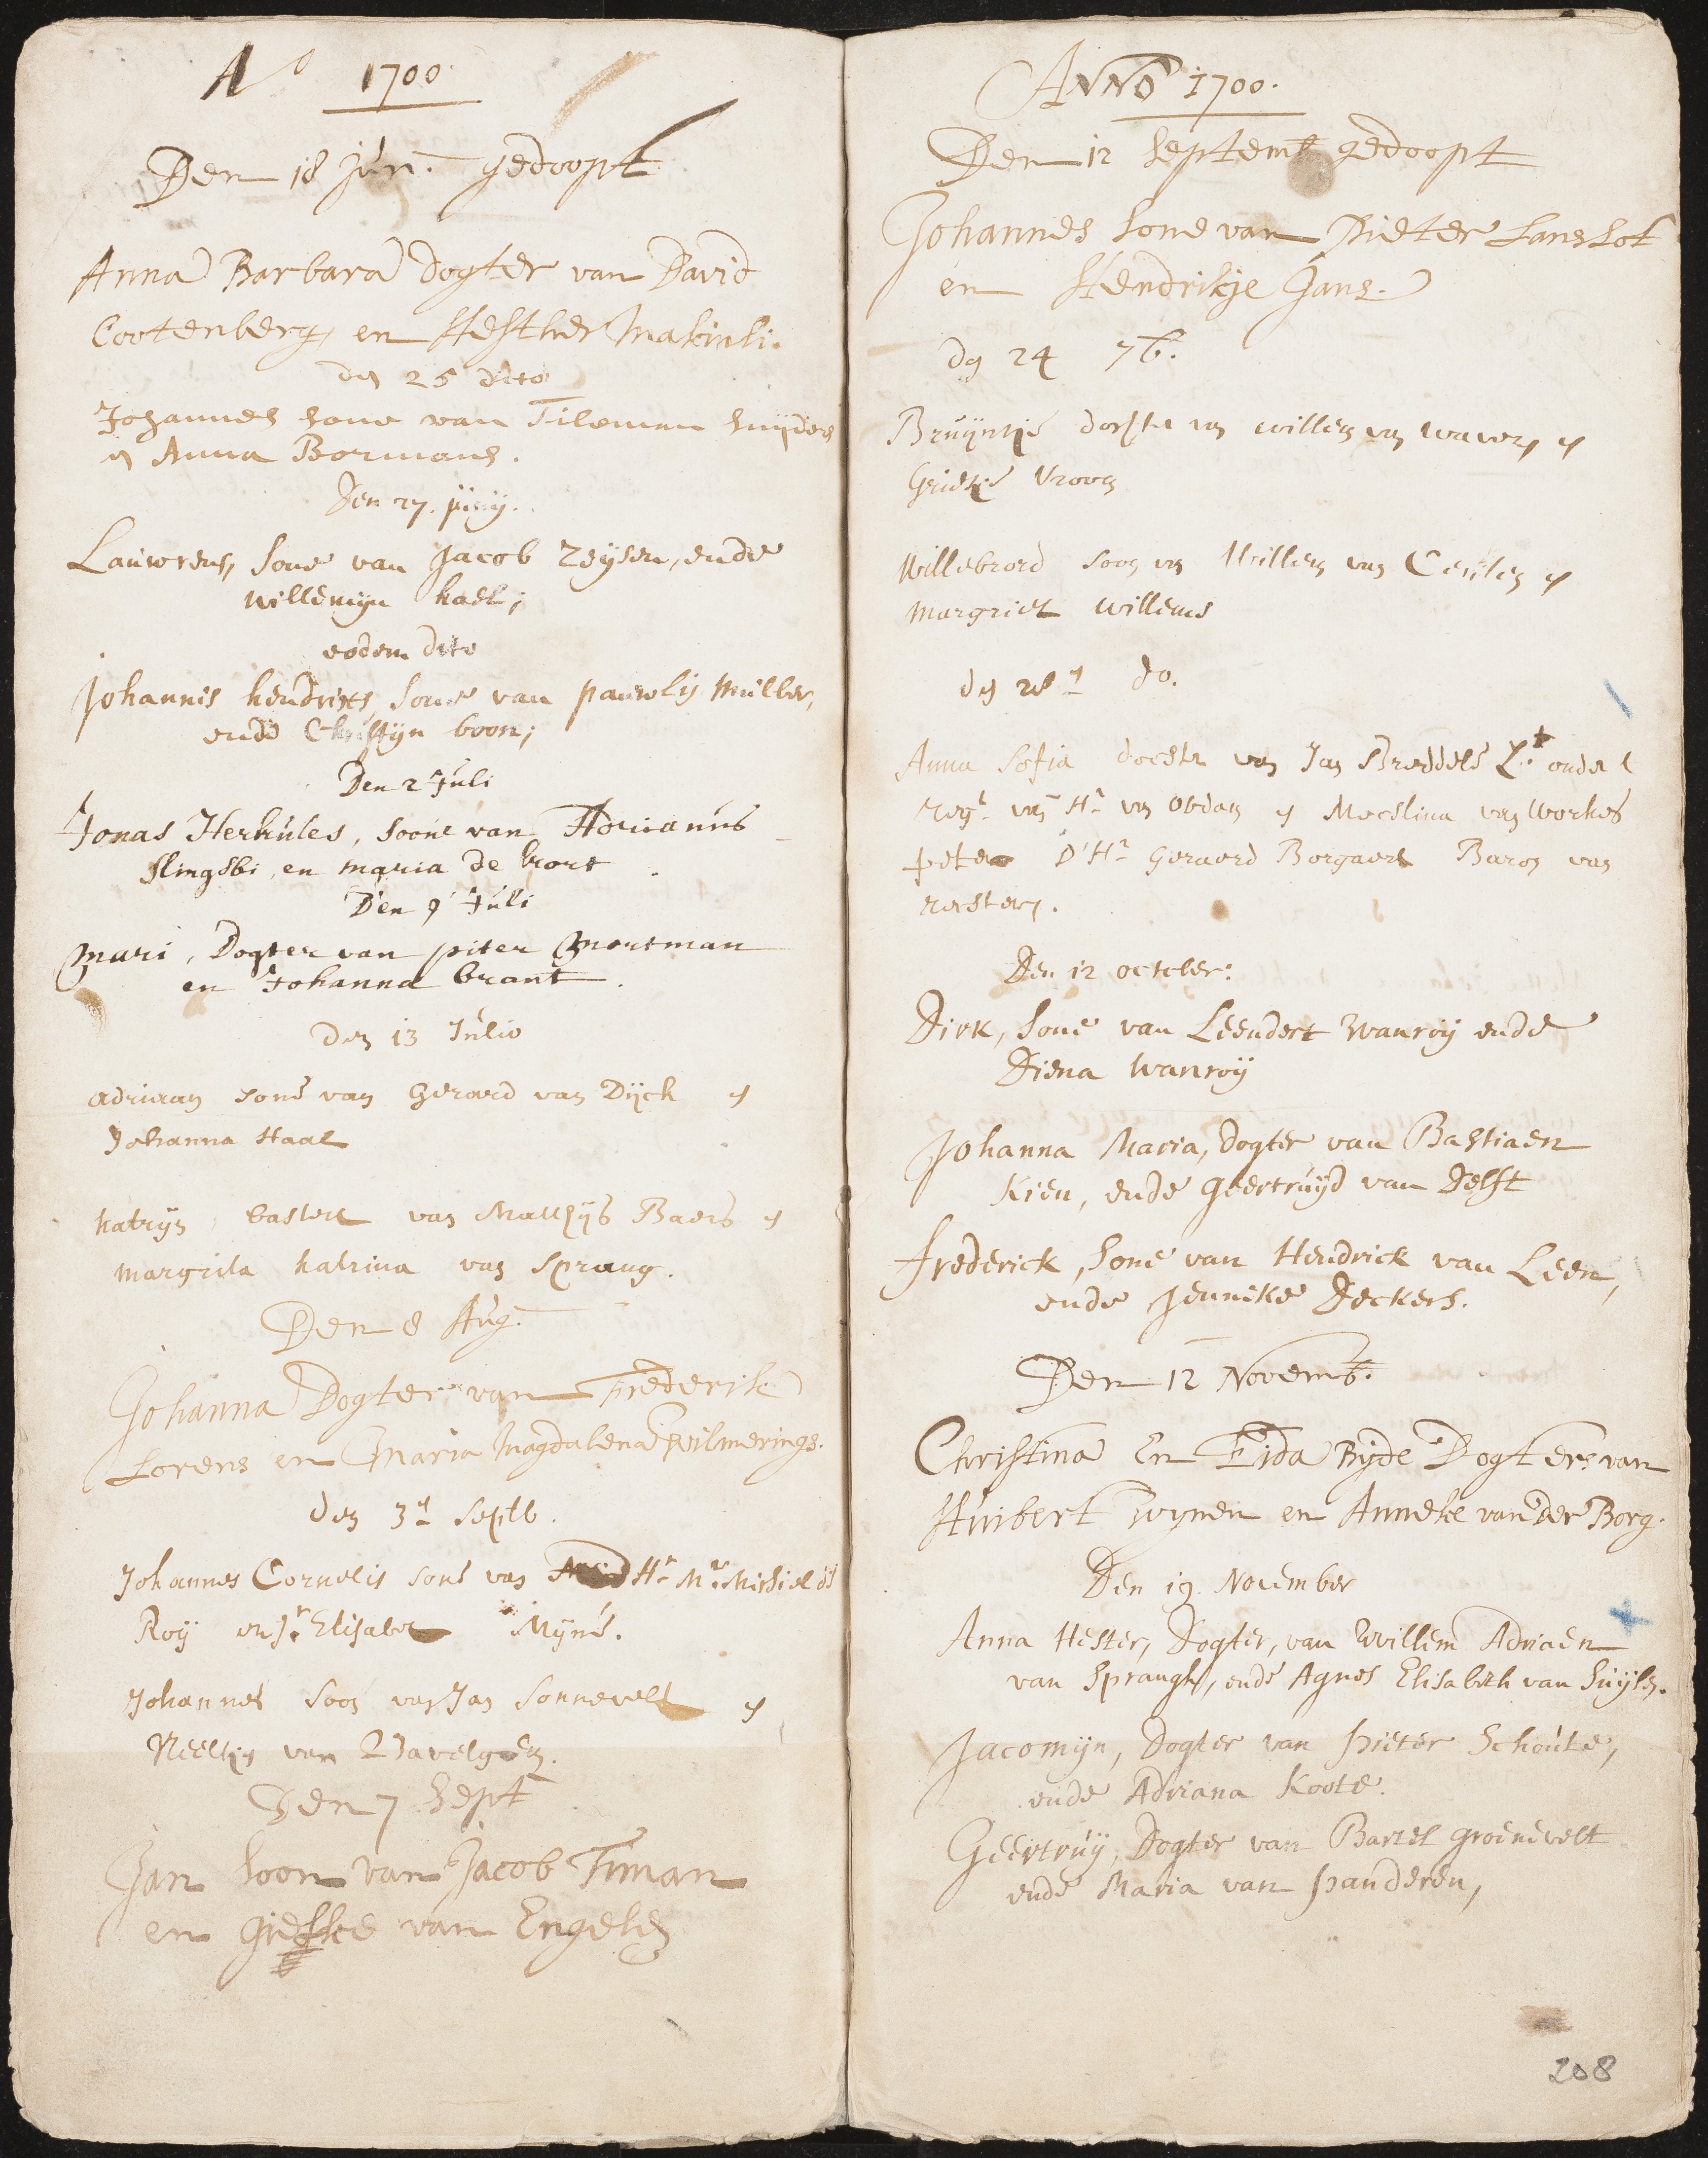 Ao 1700
Den 18 Jun. gedoopt
Anna Barbara dogter van David
Cootenberg en Hesther Makinli.
den 25 dito
Johannes sone van Tileman snyders
en Anna Bormans.
Den 27. junij.
Lauwrens, sone van Jacob Zeysen, ende
willemijn kael;
eodem dito
Johannis hendrixs, sone van pauwlis Muller,
ende Christijn boon;
Den 2 Juli
Jonas Herkules, soone van Adrianus
slingsbi, en maria de kort
Den 9 Juli
Mari, Dogter van piter Mortman
en Johanna brant.
den 13 Julio
adriaan sone van Gerard van Dijck en
Johanna Staal
katryn, bastert van Mattijs Baers en
margrita katrina van Spraug.
Den 8 Aug.
Johanna Dogter van Frederik
Lorens en Maria Magdalena Wilmerings.
den 3e Septb.
Johannes Cornelis sone van Hr Mr. Michiel de
Roij en Jr Elisabet Myne.
Johannes soon van Jan Sonnevelt en
Neeltje van
Den 7 Sept
Jan soon van Jacob Timan
en Gieske van Engelen
Anno 1700.
Den 12 Septemb gedoopt
Johannes sone van Pieter Lanslot
en Hendrikje Jans.
den 24 7b.
Bruijntje dochter van willem van waveren en
Grietje Vroom
Willebrord soon van Willem van Ceulen en
Margriet Willems
den 28e do.
Anna Sofia dochter van Jan Breddels Lt. onder t
Regt. van Hr van Obdam en Mechlina van Workes
peter D'Hr Geraerd Borgaert Baron van
Den 12 october:
Dirk, sone van Leendert Wanroij ende
Diena Wanroij
Johanna Maria, dogter van Bastiaen
Kien, ende Geertruijd van Delft
Frederick, sone van Hendrick van Leen,
ende Jennike Deckers.
Den 12 Novemb.
Christina En Eida Byde Dogters van
Huibert Wynen en Anneke van der Borg.
Den 19. November
Anna Hester, Dogter, van Willem Adriaen
van Spraugh, ende Agnes Elisabeth van Suijlen.
Jacomijn, Dogter van Pieter Schoute,
ende Adriana Koote.
Geertruij, Dogter van Bartel Groenevelt
ende Maria van Panderen,
208